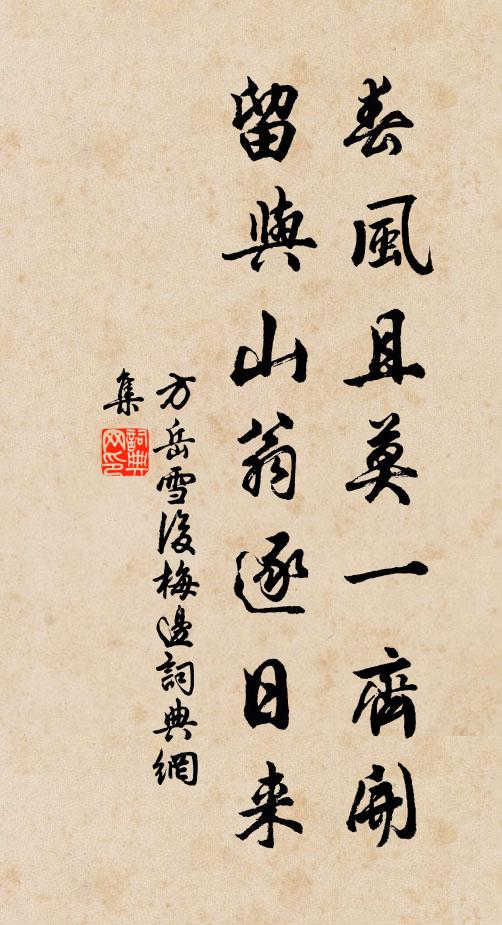 春風且莫一齊開
留與山翁逐日来
方岳雪後梅邊詞典網
集
詞典網印